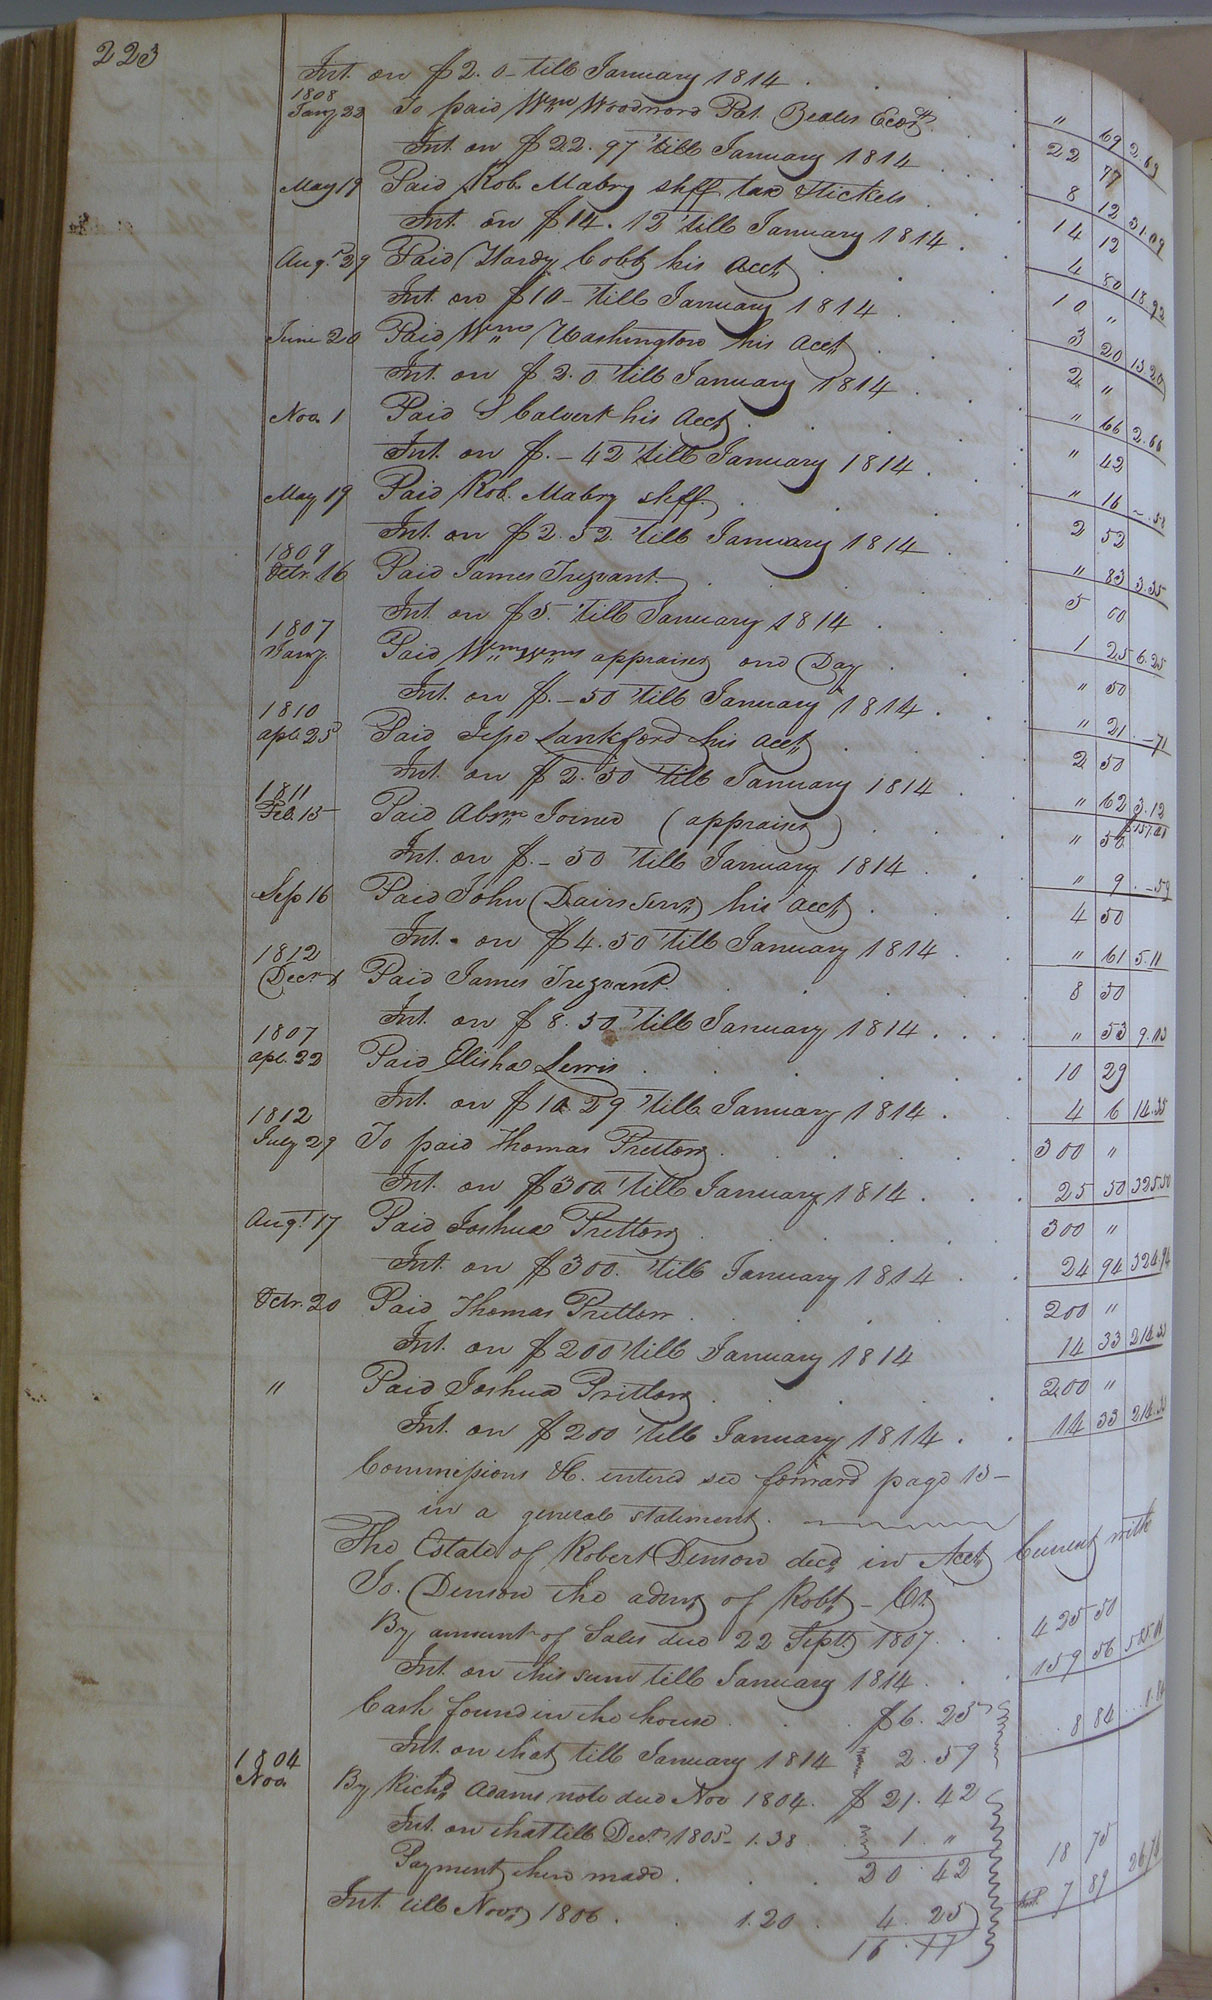 223
Int. on $2. 0 - till January 1814 . . " 69 2.69
1808
Jany 22 To paid Wm Woodward Pat. Beales Exor 22 97
Int. on $22. 97 till January 1814 . . . 8 12 31.09
May 19 Paid Rob. Mabry shff tax Tickets . 14 12
Int. on $14. 12 till January 1814 . 4 80 18.92
Augt. 29 Paid Hardy Cobb his Acct . . 10 "
Int. on $10 - till January 1814 . . 3 20 13.20
June 20 Paid Wm Washington his Acct . 2 "
Int. on $2. 0 till January 1814 . . " 66 2.66
Nov. 1 Paid S Calvert his Acct . . " 42
Int. on $. - 42 till January 1814 . . " 16 - .58
May 19 Paid Rob. Mabry shff. . . 2 52
Int. on $2. 52. till January 1814 . " 83 3.35
1809
Octr. 16 Paid James Trezvant . . 5 00
Int. on $5. till January 1814 . . 1 25 6.25
1807
Jany. Paid Wm appraiser one Day . " 50
Int. on $. - 50 till January 1814 . . " 21 . - 71
1810
apl. 25 Paid Jesse Lankford his Acct . . 2 50
Int. on $2. 50 till January 1814 . . " 62 3.12
1811
Feb. 15 Paid Absm Joiner (appraiser) . . " 50
Int. on $. - 50 till January 1814 . . " 9 . - 59
Sep 16 Paid John Davis Senr his Acct . . 4 50
Int. on $4. 50 till January 1814 . . " 61 5.11
1812
Decr. Paid James Trezvant . . 8 50
Int. on $8. 50. till January 1814 . . . . " 53 9.03
1807
apl. 22 Paid Elisha Lewis . . . 10 29
Int. on $10. 29 till January 1814 . . 4 6 14.35
1812
July 29 To paid Thomas Pretlow . . . 300 "
Int. on $300. till January 1814 . . . 25 50 325.50
Augt. 17 Paid Joshua Pretlow . . . 300 "
Int. on $300. till January 1814 . . 24 94 324.94
Octr. 20 Paid Thomas Pretlow . . . 200 "
Int. on $200 till January 1814 14 33 214.33
" Paid Joshua Pretlow . . . 200 "
Int. on $200 till January 1814 . . 14 33 214.33
Commissions &c. entered see forward page 13 -
in a general statement.
The Estate of Robert Denson decd in Acct Current with
Jo. Denson the admr of Robt - Cr.
By amount of Sales due 22 Septr 1807 . . . 425 50
Int. on this sum till January 1814 . . 159 56
Cash found in the house . . $6. 25
Int. on that till January 1814 2. 59 . . 8 84
1804
Nov. By Richd Adams note due Nov 1804. $21. 42
Int. on that till Decr. 1805 - 1.38 . . 1. "
Payment then made . . . 20. 42 18 75
Int. till Novr 1806 . . 1.20 . 4. 25 7 89
16.